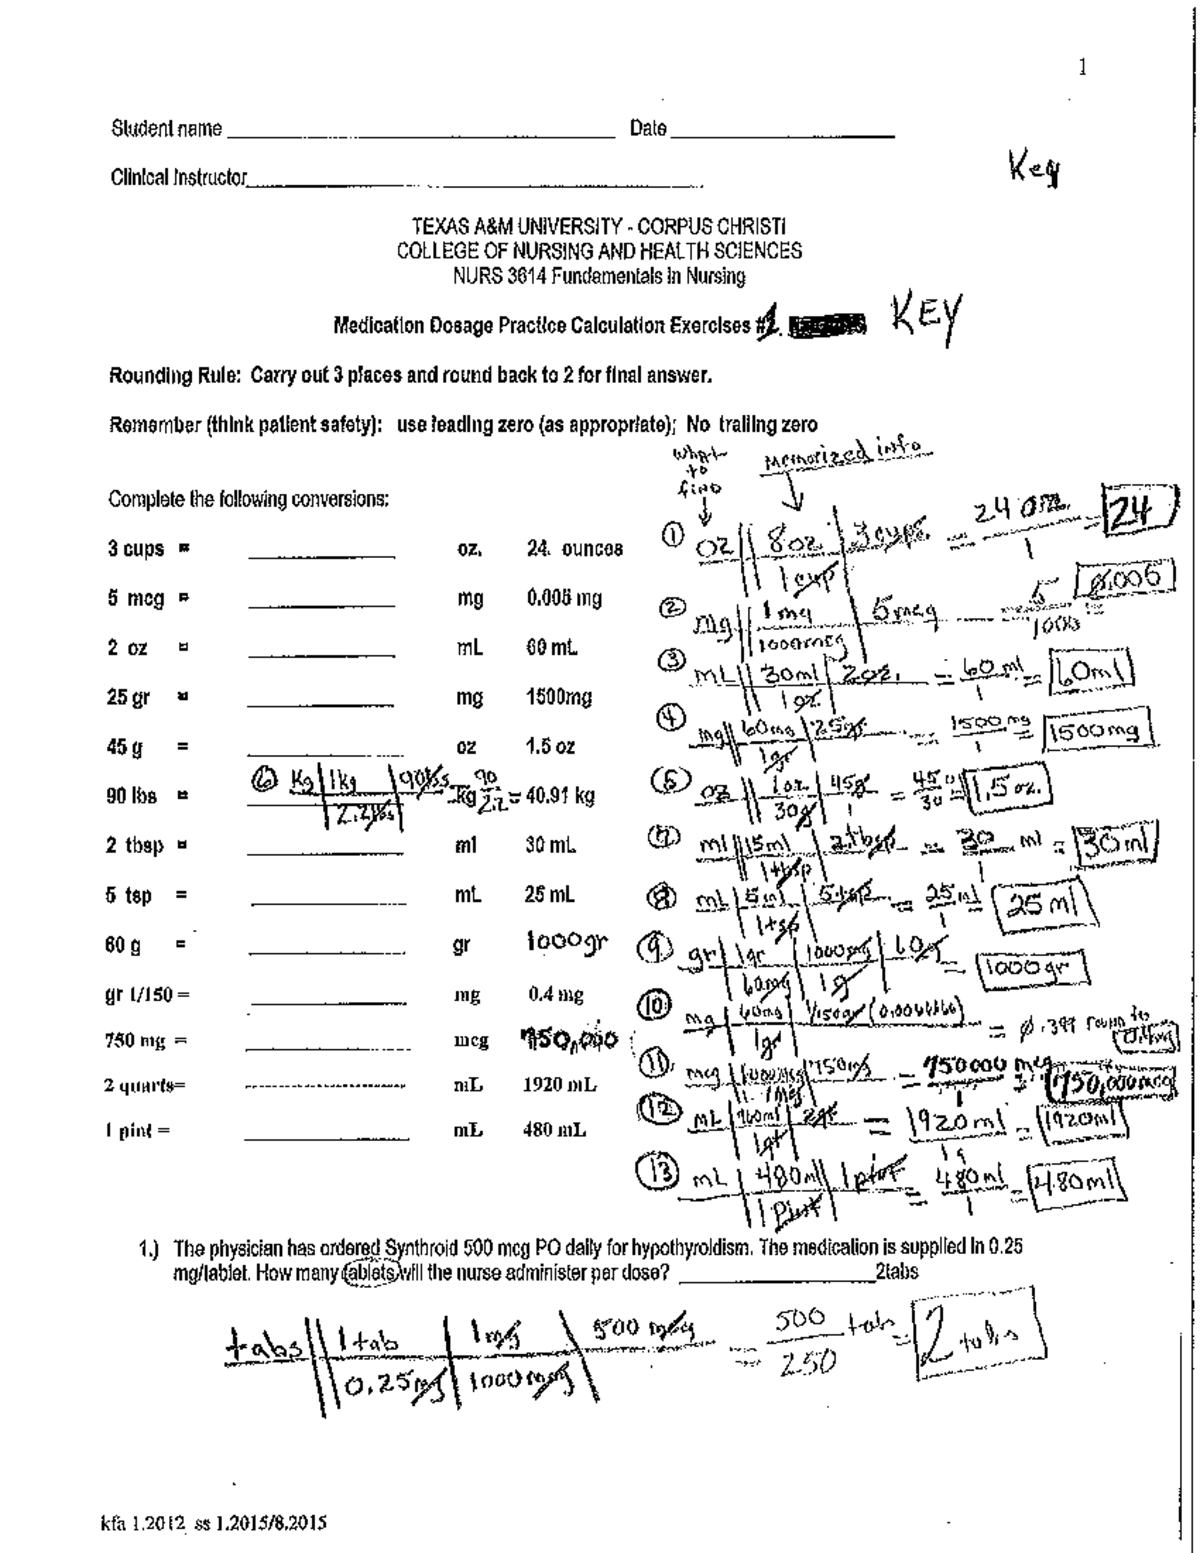 1
Student name ____________ Date ____________
Key
Clinical Instructor ____________
TEXAS A&M UNIVERSITY - CORPUS CHRISTI
COLLEGE OF NURSING AND HEALTH SCIENCES
NURS 3614 Fundamentals in Nursing
Medication Dosage Practice Calculation Exercises #1. KEY
Rounding Rule: Carry out 3 places and round back to 2 for final answer.
Remember (think patient safety): use leading zero (as appropriate); No trailing zero
what to find
Memorized info
Complete the following conversions:
3 cups = ____________ oz. 24. ounces
① oz || 8oz / 1cup | 3cups = 24 / 1 = 24
5 mcg = ____________ mg 0.005 mg
② mg || 1mg / 1000mcg | 5mcg = 5 / 1000 = 0.005
2 oz = ____________ mL 60 mL
③ mL || 30ml / 1oz | 2oz. = 60ml / 1 = 60ml
25 gr = ____________ mg 1500mg
④ mg || 60mg / 1gr | 25gr = 1500mg / 1 = 1500mg
45 g = ____________ oz 1.5 oz
oz || 1oz / 30g | 45g = 45 / 30 = 1.5 oz.
90 lbs = ____________ kg = 40.91 kg
⑥ Kg | 1kg / 2.2lbs | 90lbs 90 / 2.2
2 tbsp = ____________ ml 30 mL
⑦ ml || 15ml / 1tbsp | 2tbsp = 30 / 1 ml = 30ml
5 tsp = ____________ mL 25 mL
⑧ mL | 5ml / 1tsp | 5tsp = 25ml / 1 = 25ml
60 g = ____________ gr 1000gr
⑨ gr | 1gr / 60mg | 1000mg / 1g | 60g = 1000gr
gr 1/150 = ____________ mg 0.4 mg
⑩ mg | 60mg / 1gr | 1/150gr = 0.399 round to 0.4mg
750 mg = ____________ mcg 750,000
⑪ mcg || 1000mcg / 1mg | 750mg = 750000 mcg / 1 = 750,000mcg
2 quarts= ____________ mL 1920 mL
⑫ mL | 960ml / 1qt | 2qt = 1920ml / 1 = 1920ml
1 pint = ____________ mL 480 mL
⑬ mL | 480ml / 1pint | 1pint = 480ml / 1 = 480ml
1.) The physician has ordered Synthroid 500 mcg PO daily for hypothyroidism. The medication is supplied in 0.25
mg/tablet. How many tablets will the nurse administer per dose? ____________2tabs
tabs || 1tab / 0.25mg | 1mg / 1000mcg | 500 mcg = 500 / 250 tab = 2 tabs
kfa 1.2012 ss 1.2015/8.2015